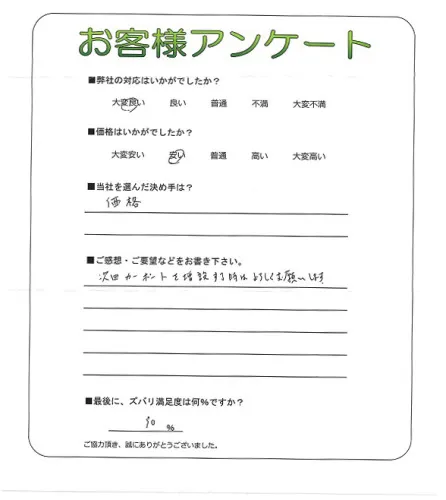 お客様アンケート
■弊社の対応はいかがでしたか？
大変良い 良い 普通 不満 大変不満
■価格はいかがでしたか？
大変安い 安い 普通 高い 大変高い
■当社を選んだ決め手は？
価格
■ご感想・ご要望などをお書き下さい。
次回カーポントを増設する時はよろしくお願いします
■最後に、ズバリ満足度は何％ですか？
90 ％
ご協力頂き、誠にありがとうございました。